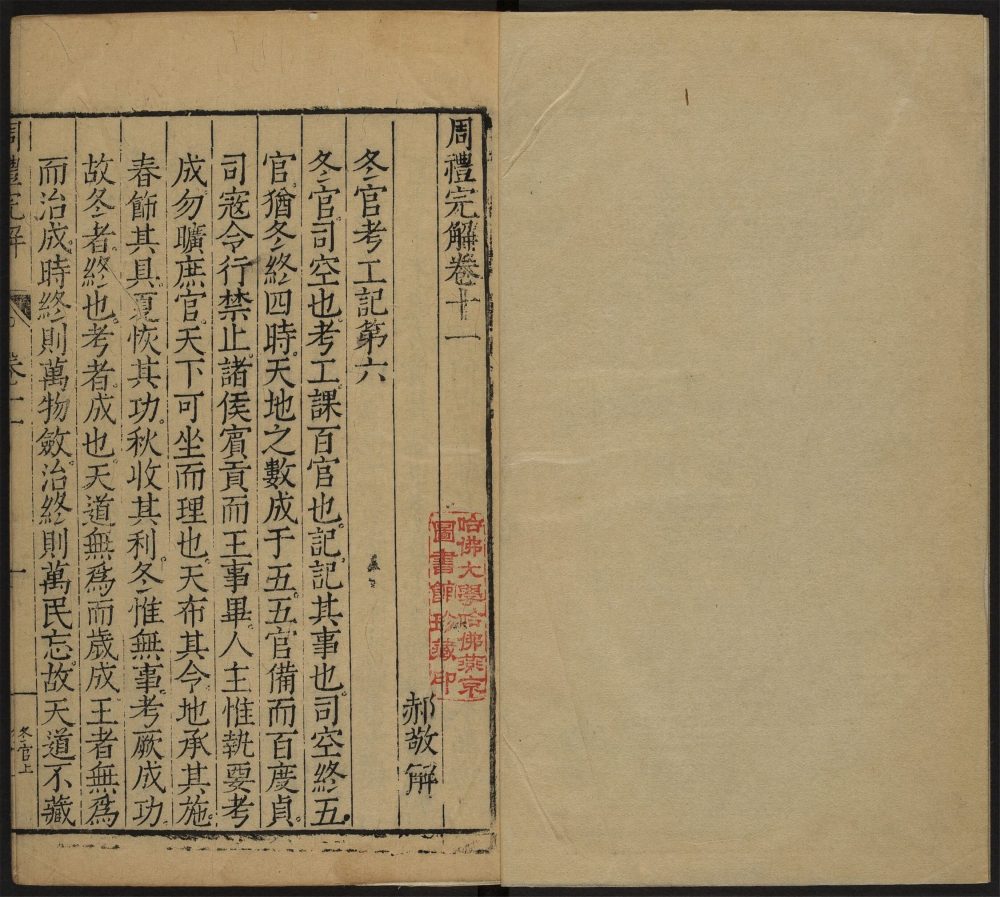 周禮完解卷十一
郝敬解
冬官考工記第六
冬官司空也考工課百官也記記其事也司空終五
官猶冬終四時天地之數成于五五官備而百度貞
司寇令行禁止諸侯賓貢而王事畢人主惟執要考
成勿曠庶官天下可坐而理也天布其令地承其施
春飭其具夏恢其功秋收其利冬惟無事考厥成功
故冬者終也考者成也天道無為而歲成王者無為
而治成時終則萬物斂治終則萬民忘故天道不藏
周禮完解
卷十一
一
冬官上
哈佛大學哈佛燕京
圖書館珍藏印